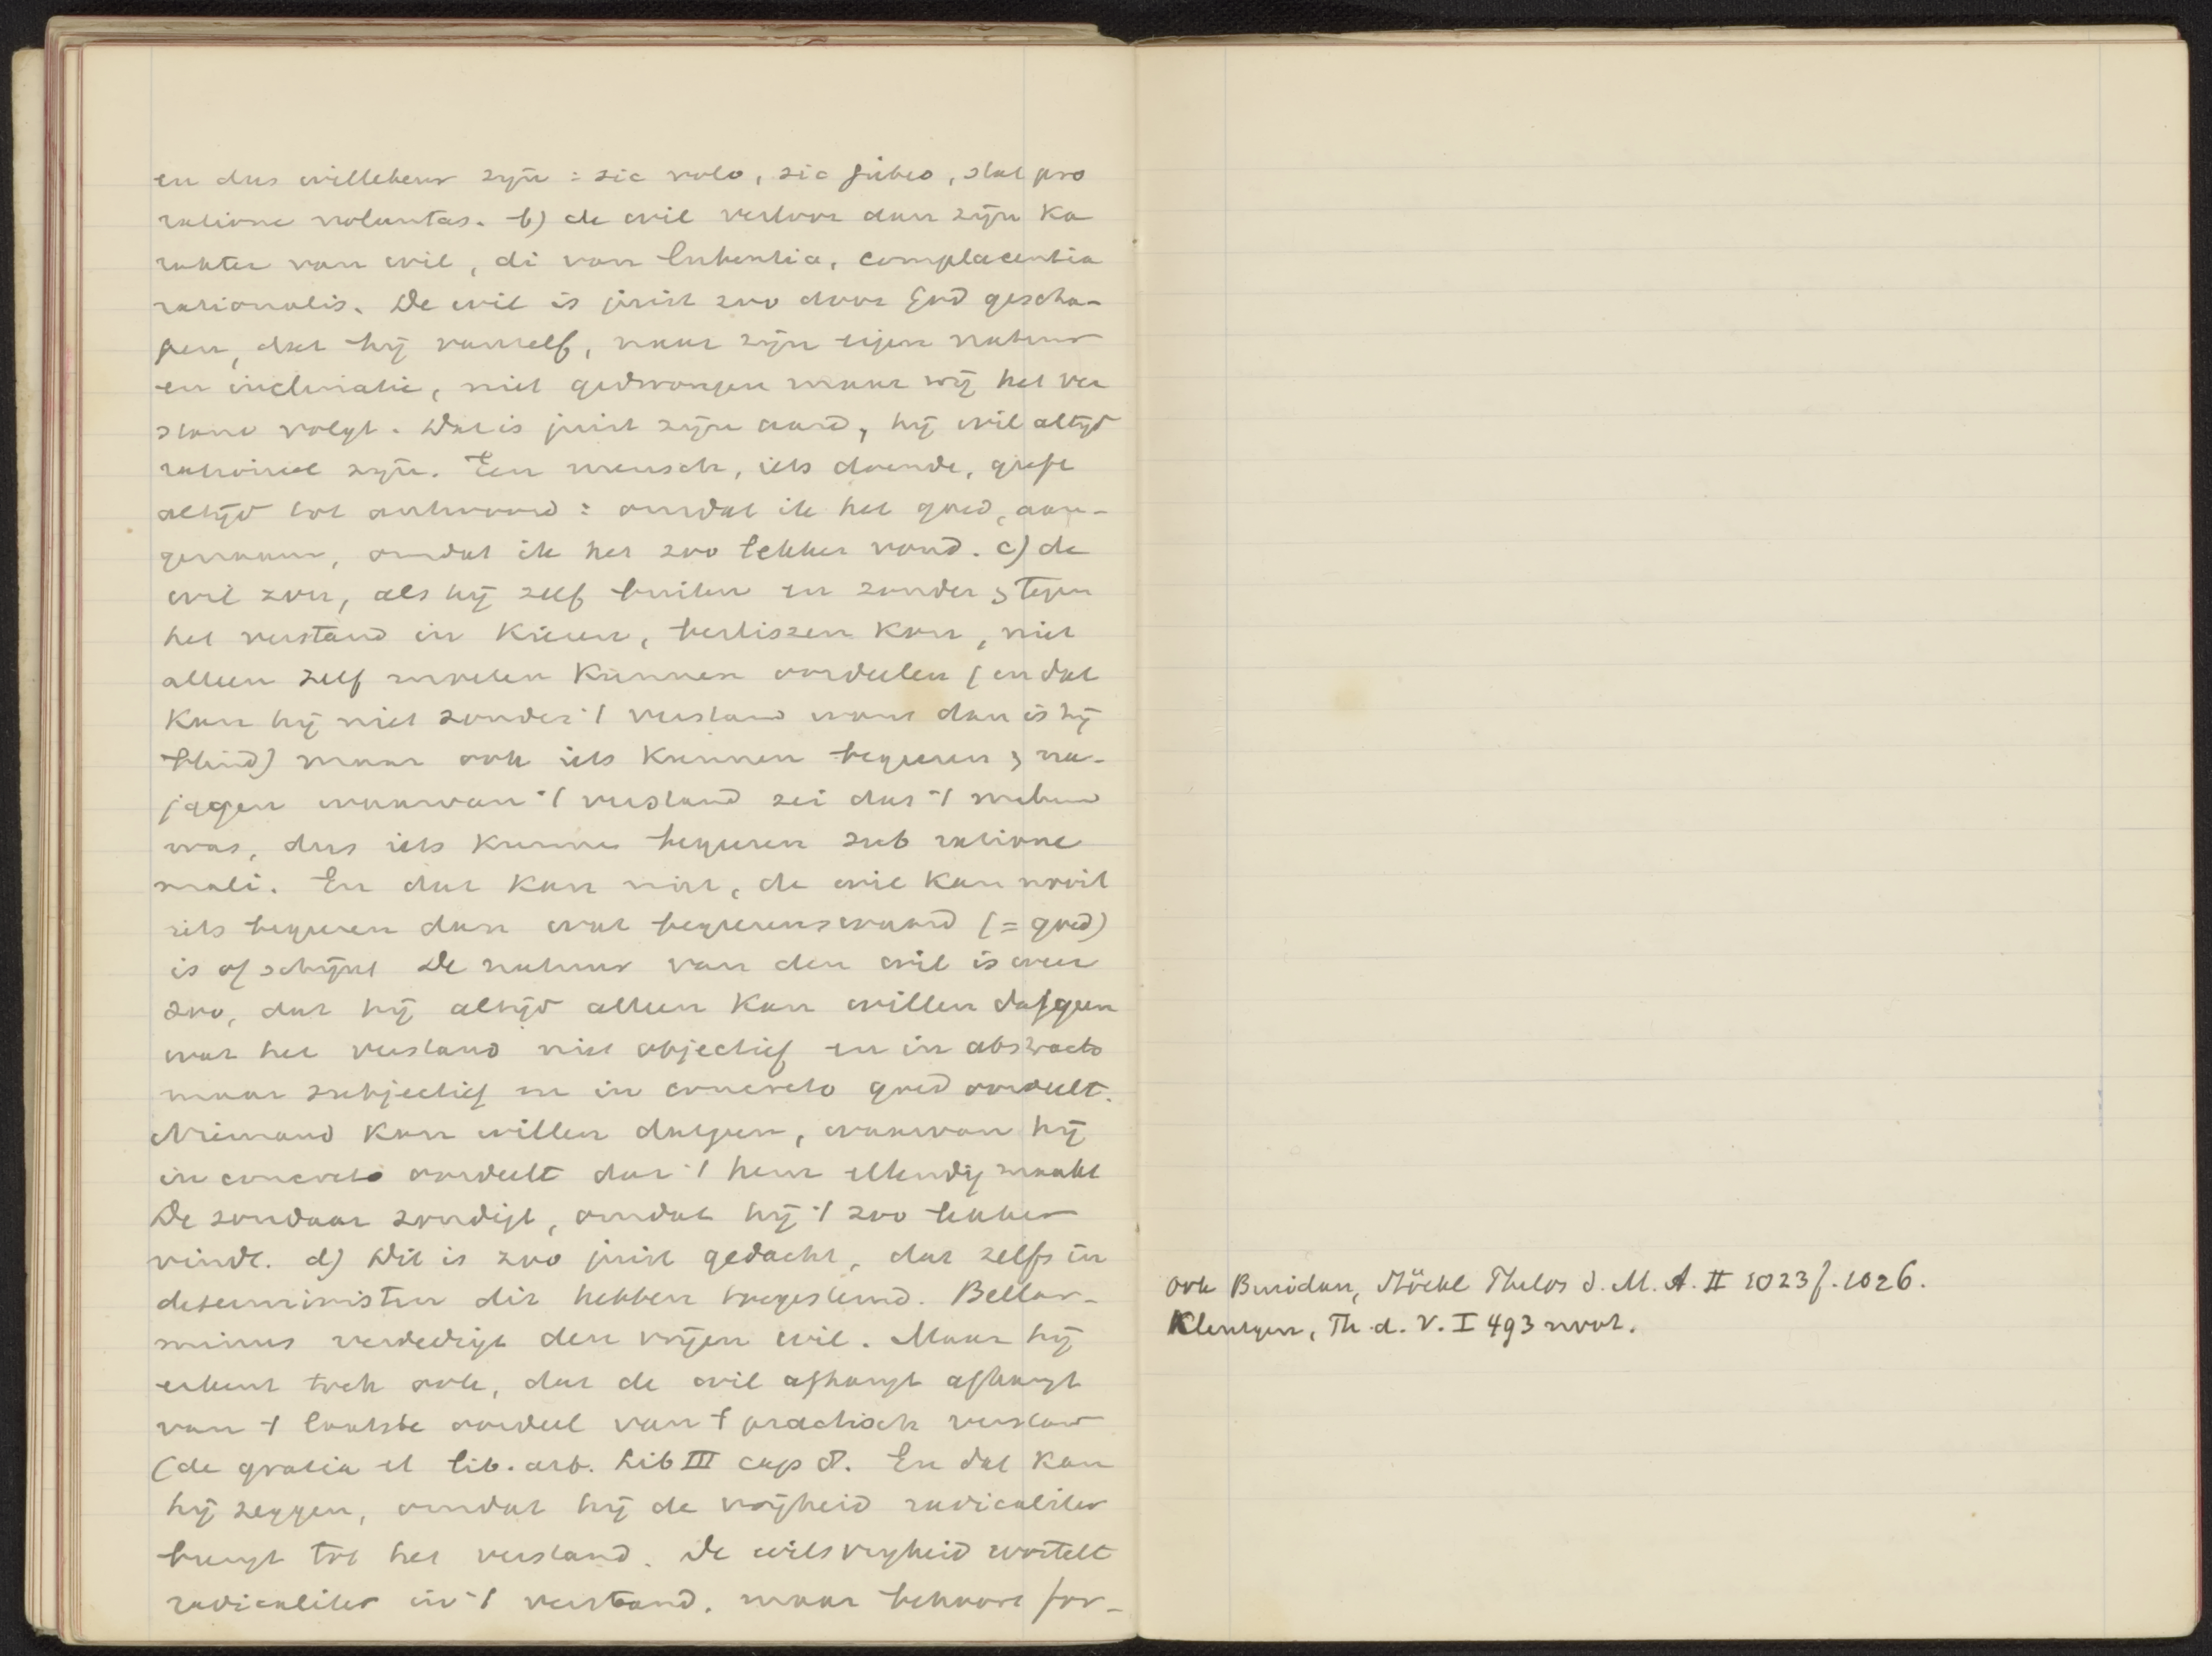 en dus willekeur zijn: sic volo, sic jubeo, stat pro
ratione voluntas. b) de wil verloor dan zijn ka
rakter van wil, di van lubentia, complacentia
rationalis. De wil is juist zoo door God gescha-
pen, dat hij vanzelf, naar zijn eigen natuur
en inclinatie, niet gedwongen maar vrij het ver
stand volgt. Dat is juist zijn aard, hij wil altijd
rationeel zijn. Een mensch, iets doende, geeft
altijd tot antwoord: omdat ik het goed, aan-
genaam, omdat ik het zoo lekker vond. c) de
wil zou, als hij zelf buiten en zonder & tegen
het verstand in kiezen, beslissen kon, niet
alleen zelf moeten kunnen oordeelen (en dat
kan hij niet zonder 't verstand want dan is hij
blind) maar ook iets kunnen begeeren & na-
jagen waarvan 't verstand zei dat 't malum
was, dus iets kunne begeeren sub ratione
mali. En dat kan niet, de wil kan nooit
iets begeeren dan wat begeerenswaard (= goed)
is of schijnt De natuur van den wil is weer
zoo, dat hij altijd alleen kan willen datgeen
wat het verstand niet objectief en in abstracto
maar subjectief en in concreto goed oordeelt.
Niemand kan willen datgeen, waarvan hij
in concreto oordeelt dat 't hem ellendig maakt
De zondaar zondigt, omdat hij 't zoo lekker
vindt. d) Dit is zoo juist gedacht, dat zelfs in
deterministen dit hebben toegestemd. Bellar-
minus verdedigt den vrijen wil. Maar hij
erkent toch ook, dat de wil afhangt afhangt
van 't laatste oordeel van 't practisch verstand
(de gratia et lib. arb. Lib III cap 8. En dat kan
hij zeggen, omdat hij de vrijheid radicaliter
brengt tot het verstand. De wilsvrijheid wortelt
radicaliter in 't verstand, maar behoort for-
ook Buridan, Stöckl Philos d. M. A. II 1023f. 1026.
Kleutgen, Th. d. V. I 493 noot.